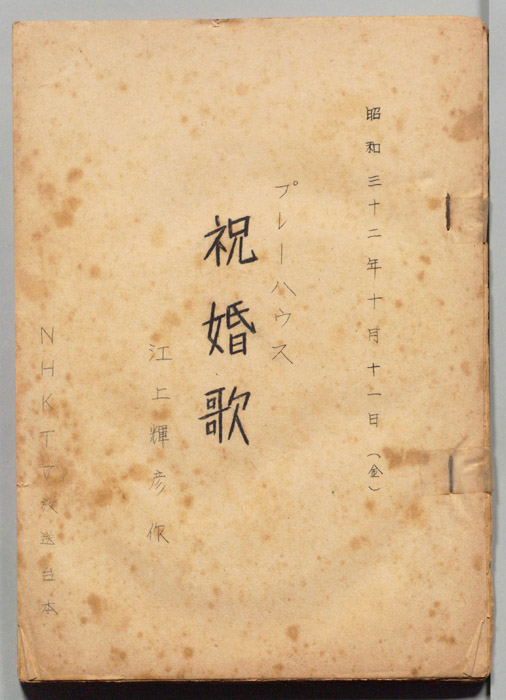 昭和三十二年十月十一日（金）
プレーハウス
祝婚歌
江上輝彦作
NHKTV放送台本